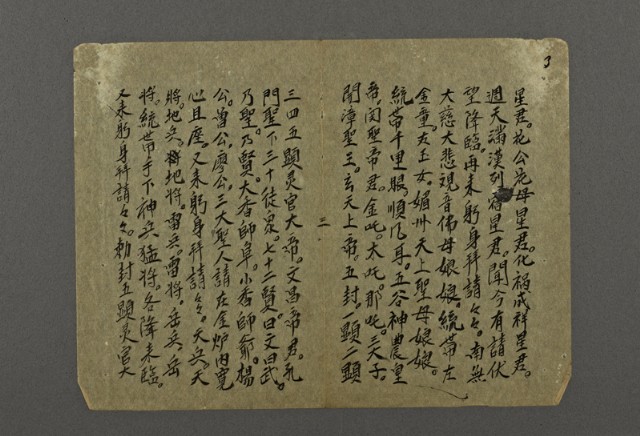 星君。花公花母星君。化禍成祥星君。
週天滿漢列宿星君。聞今有請伏
望降臨。再來躬身拜請々々。南無
大慈大悲觀音佛母娘娘。統帶左
金童右玉女。媚州天上聖母娘娘。
統帶千里眼順風耳。五谷神農皇
帝。関聖帝君。金吒。木吒。那吒。三天子。
開漳聖王。玄天上帝。五封。一顯二顯
三
三四五顯灵官大帝。文昌帝君。孔
門聖下三千徒衆。七十二賢。曰文曰武。
乃聖。乃賢。大香師阜。小香師爺。楊
公。曾公。廖公。三大聖人請在金炉內寬
心且座。又来躬身拜請々々。天兵。天
將。地兵。地將。雷兵。雷將。岳兵。岳
將。統帶手下神兵猛將。各降来臨。
又来躬身拜請々々。勅封五顯灵官大